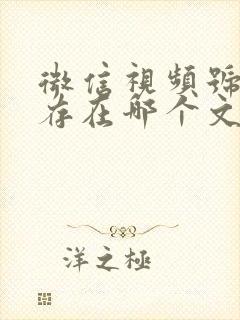 微信視頻號
存在哪个文
洋之極